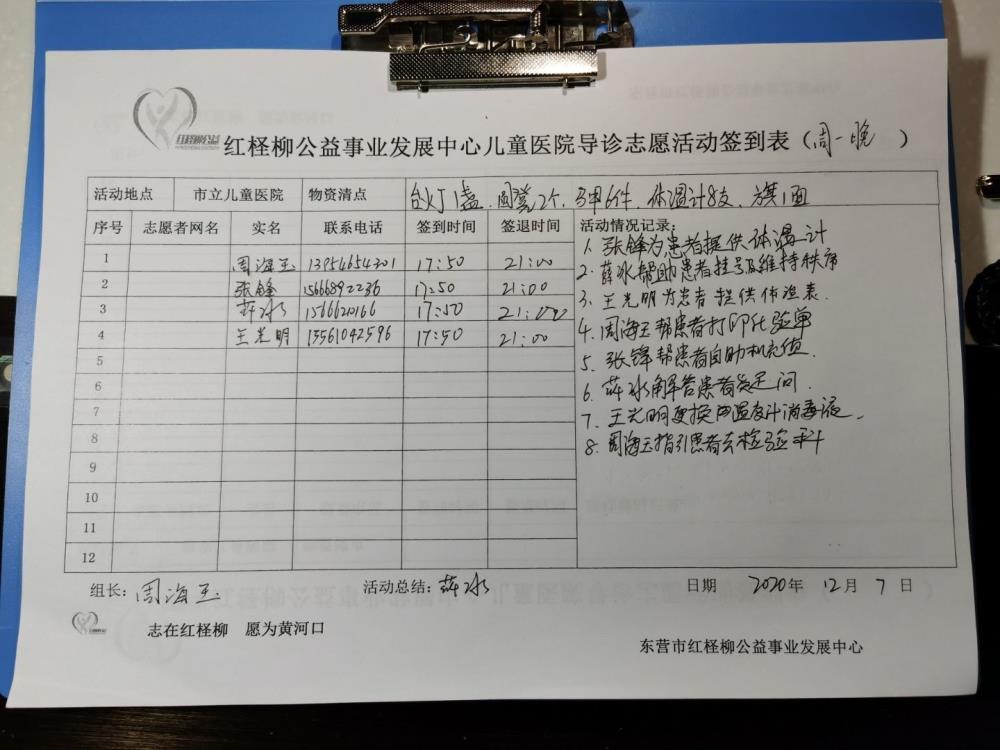 红柽柳公益
红柽柳公益事业发展中心儿童医院导诊志愿活动签到表（周一晚）
活动地点 市立儿童医院 物资清点 台灯1盏、圆凳2个、马甲6件、体温计8支、方旗1面
序号 志愿者网名 实名 联系电话 签到时间 签退时间 活动情况记录：
1 周海玉 13954654301 17:50 21:00
2 张锋 15668892236 17:50 21:00
3 薛冰 1566620166 17:50 21:00
4 王光明 15561042596 17:50 21:00
5
6
7
8
9
10
11
12
1、张锋为患者提供体温计
2、薛冰帮助患者挂号及维持秩序
3、王光明为患者提供体温表.
4、周海玉帮患者打印化验单
5、张锋帮患者自助机充值.
6、薛冰解答患者疑问.
7、王光明更换体温计消毒液.
8、周海玉指引患者去检验科
组长：周海玉 活动总结：薛冰 日期 2020年 12月 7日
志在红柽柳 愿为黄河口
东营市红柽柳公益事业发展中心